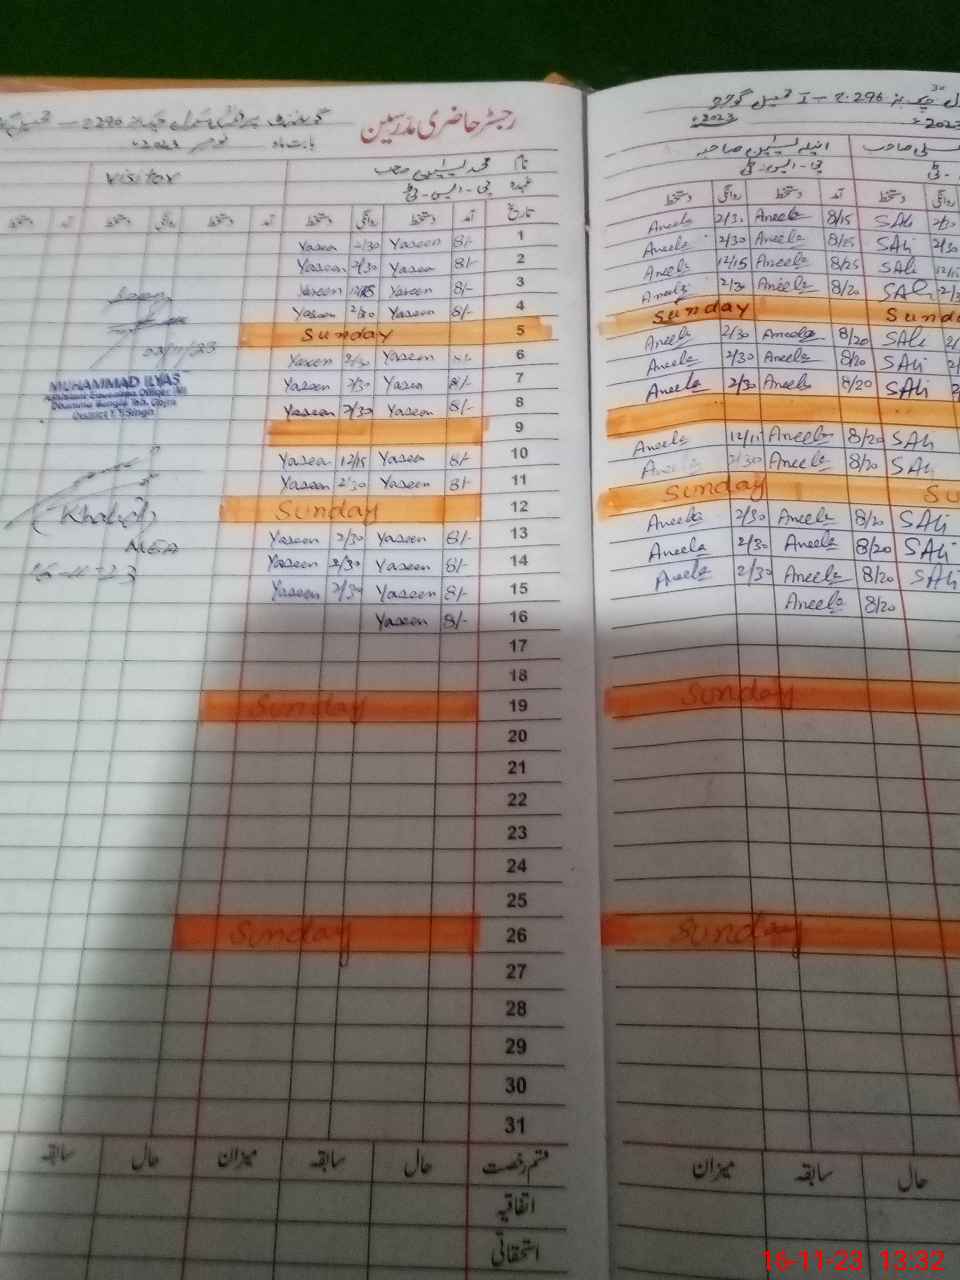 رجسٹر حاضری مدرسین
بابت ماہ نومبر 2023ء
نام محمد یٰسین صاحب
عہدہ پی-ایس-ٹی
Visitor
تاریخ آمد دستخط روانگی دستخط آمد دستخط دستخط آمد دستخط
1 8/- Yaseen 2/30 Yaseen
2 8/- Yaseen 2/30 Yaseen
3 8/- Yaseen Yaseen
4 8/- Yaseen 2/30 Yaseen
5 Sunday
6 Yaseen 2/30 Yaseen
7 8/- Yaseen 2/30 Yaseen
8 8/- Yaseen 2/30 Yaseen
9
10 8/- Yaseen 12/15 Yaseen
11 8/- Yaseen 2/30 Yaseen
12 Sunday
13 8/- Yaseen 2/30 Yaseen
14 8/- Yaseen 2/30 Yaseen
15 8/- Yaseen 2/30 Yaseen
16 8/- Yaseen
17
18
19 Sunday
20
21
22
23
24
25
26 Sunday
27
28
29
30
31
قسم رخصت حال سابقہ میزان حال سابقہ
اتفاقیہ
استحقاقی
MUHAMMAD ILYAS
Assistant Education Officer (M)
District T.T.Singh
(Khalid)
MEA
16-11-23
2023ء
2023ء
انیلہ یٰسین صاحبہ
پی-ایس-ٹی
دستخط آمد دستخط روانگی دستخط
SAli 8/15 Aneela 2/30 Aneela
SAli 8/15 Aneela 2/30 Aneela
SAli 8/25 Aneela 12/15 Aneela
SAli 8/20 Aneela 2/30 Aneela
Sunday
SAli 8/20 Aneela 2/30 Aneela
SAli 8/20 Aneela 2/30 Aneela
SAli 8/20 Aneela 2/30 Aneela
SAli 8/20 Aneela Aneela
SAli 8/20 Aneela 2/30 Aneela
Sunday
SAli 8/20 Aneela 2/30 Aneela
SAli 8/20 Aneela 2/30 Aneela
SAli 8/20 Aneela 2/30 Aneela
8/20 Aneela
Sunday
Sunday
حال سابقہ میزان
16-11-23 13:32